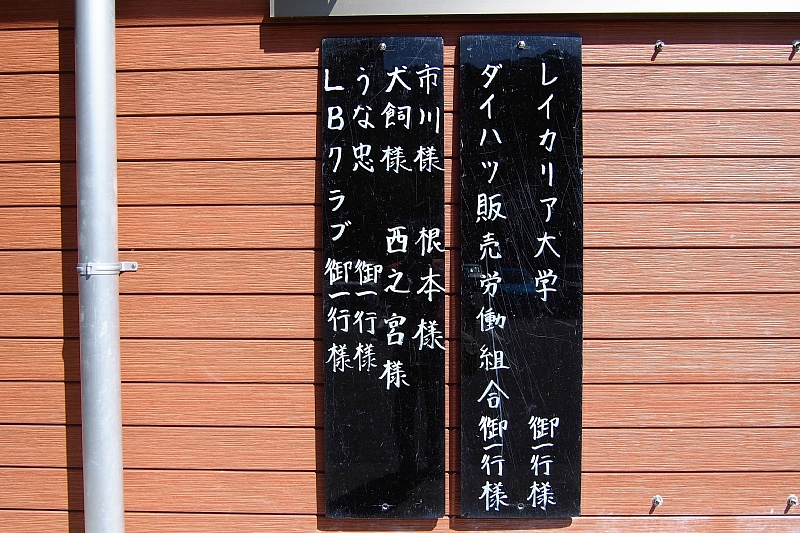 レイカリア大学 御一行様
ダイハツ販売労働組合御一行様
市川様 根本様
犬飼様 西之宮様
うな忠 御一行様
LBクラブ御一行様